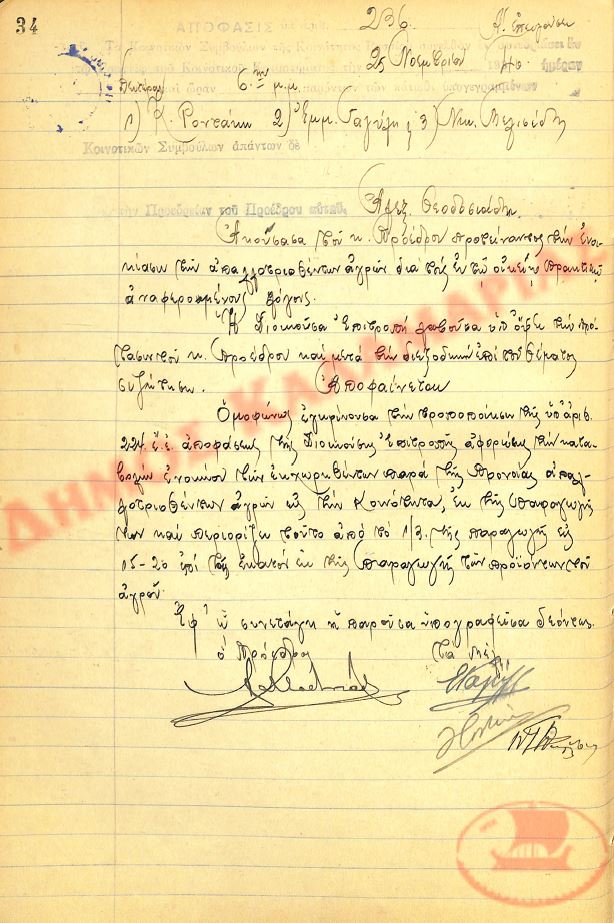 34
ΑΠΟΦΑΣΙΣ 236
Τῶν Κοινοτικῶν Συμβούλων τῆς Κοινότητος
25 Νοεμβρίου 40 ἡμέραν
6ην μ.μ. παρόντων τῶν κάτωθι ὑπογεγραμμένων
1) Κ. 2) Ἐμμ. 3) Νικ. Μελισσίδη
Κοινοτικῶν Συμβούλων ἀπάντων δὲ
τὴν Προεδρείαν τοῦ Προέδρου αὐτοῦ Ἀλεξ. Θεοδοσιάδη
Ἀκούσασα τοῦ κ. Προέδρου προτείναντος τὴν ἐνοι-
κίασιν τῶν ἀπαλλοτριωθέντων ἀγρῶν διὰ τῆς ἐν τῷ οἰκείῳ πρακτικῷ
ἀναφερομένους λόγους.
Ἡ Διοικοῦσα Ἐπιτροπὴ λαβοῦσα ὑπ' ὄψει τὴν πρό-
τασιν τοῦ κ. Προέδρου καὶ μετὰ τὴν διεξοδικὴν ἐπὶ τοῦ θέματος
συζήτησιν. Ἀποφαίνεται
Ὁμοφώνως ἐγκρίνουσα τὴν τροποποίησιν τῆς ὑπ' ἀριθ.
224 ἐ.ἔ. ἀποφάσεως τῆς Διοικούσης Ἐπιτροπῆς ἀφορώσης τὴν κατα-
βολὴν ἐνοικίου τῶν ἐκχωρηθέντων παρὰ τῆς Προνοίας ἀπαλ-
λοτριωθέντων ἀγρῶν εἰς τὴν Κοινότητα, ἐκ τῆς παραγωγῆς
των καὶ περιορίζει τοῦτο ἀπὸ τὸ 1/3 τῆς παραγωγῆς εἰς
15-20 ἐπὶ τοῖς ἑκατὸν ἐκ τῆς παραγωγῆς τῶν προϊόντων τοῦ
ἀγροῦ.
Ἐφ' ᾧ συνετάγη ἡ παροῦσα ὑπογραφεῖσα δεόντως.
ὁ Πρόεδρος Τὰ Μέλη
ΔΗΜΟΣ ΚΑΛΑΜΑΡΙΑΣ